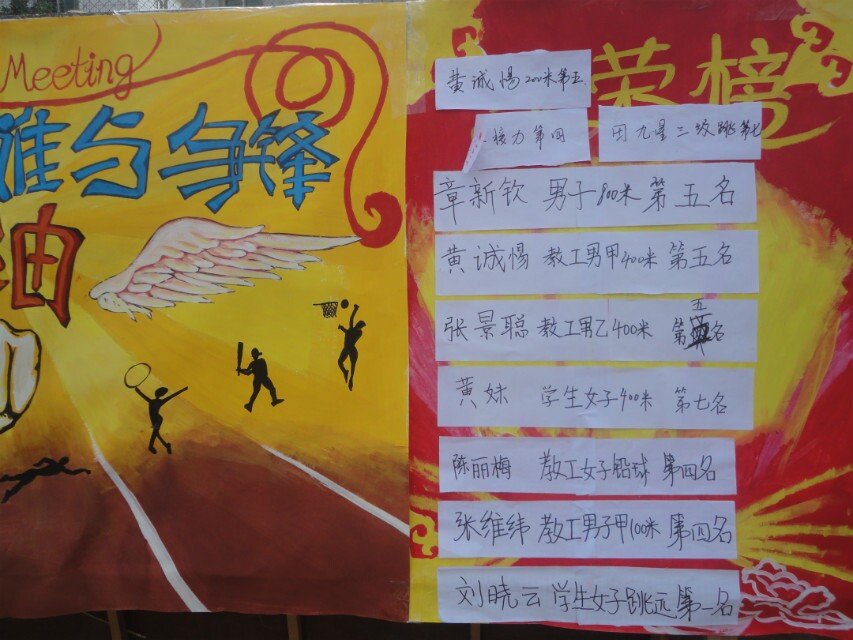 Meeting
谁与争锋
油
荣榜
黄诚惕 200米第五
接力第四
田九星 三级跳第七
章新钦 男子800米 第五名
黄诚惕 教工男甲400米 第五名
张景聪 教工男乙400米 第五名
黄妹 学生女子400米 第七名
陈丽梅 教工女子铅球 第四名
张维纬 教工男子甲100米 第四名
刘晓云 学生女子跳远 第一名